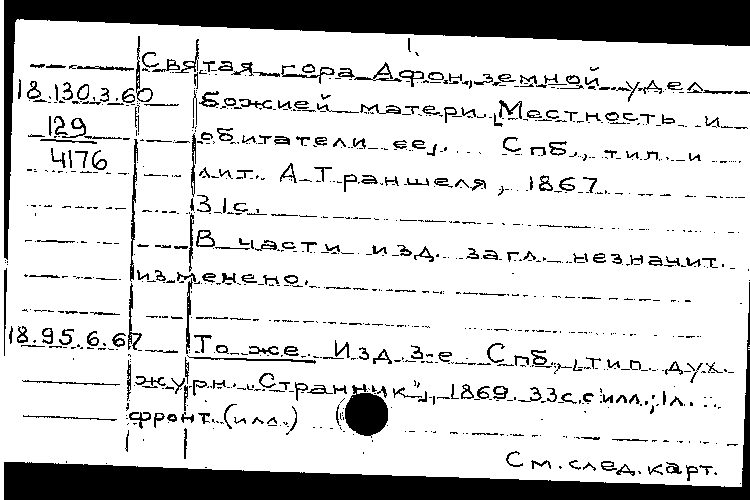 1.
Святая гора Афон, земной удел
18.130.3.60 божией матери. [Местность и
129 обитатели ее]. Спб., тип. и
4176 лит. А Траншеля, 1867.
31с.
В части изд. загл. незначит.
изменено.
18.95.6.67 То же. Изд 3-е Спб., [тип дух.
журн. "Странник"], 1869. 33с. с илл.; 1л.
фронт. (илл.)
См. след. карт.